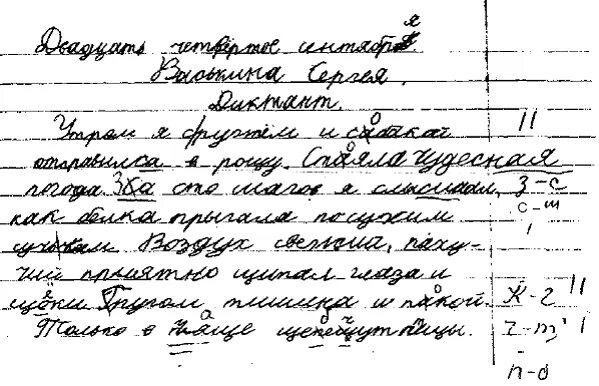 Двадцать четвёртое сентября.
Васькина Сергея.
Диктант.
Утром я фругтем и сабакаг
отправился в рощу. Спаяла чудесная
погода. Зка сто шагов я слышал,
как белка прыгала посухим
сучькам. Воздух свежий, паху-
чий приятно щипал глаза и
щёки. Гругом тишина и пакой.
Только в чаще щебечут птицы.
||
З-с
с-ш
К-г ||
г-т' |
п-о